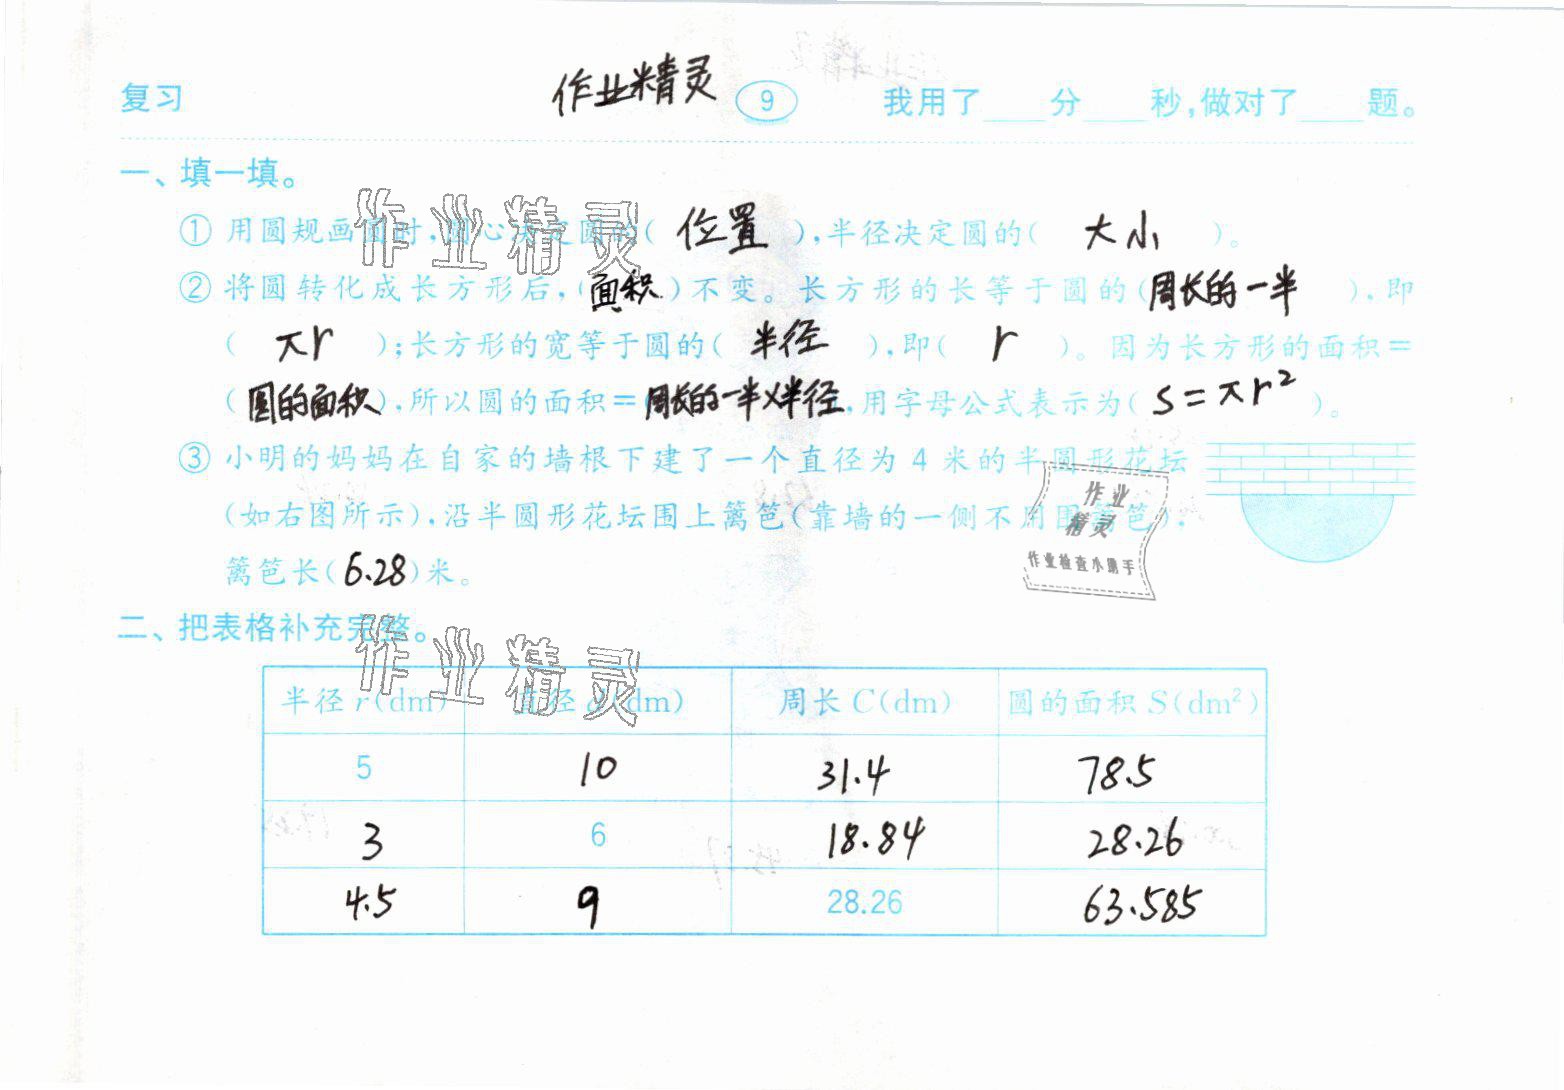 复习 作业精灵 9 我用了____分____秒,做对了____题。
一、填一填。
① 用圆规画圆时,圆心决定圆的( 位置 ),半径决定圆的( 大小 )。
② 将圆转化成长方形后,( 面积 )不变。长方形的长等于圆的( 周长的一半 ),即
( πr );长方形的宽等于圆的( 半径 ),即( r )。因为长方形的面积=
( 圆的面积 ),所以圆的面积=周长的一半×半径,用字母公式表示为( S=πr² )。
③ 小明的妈妈在自家的墙根下建了一个直径为 4 米的半圆形花坛
(如右图所示),沿半圆形花坛围上篱笆(靠墙的一侧不用围篱笆),
篱笆长( 6.28 )米。
作业精灵
作业
精灵
作业检查小助手
二、把表格补充完整。
作业精灵
半径 r(dm) 直径 d(dm) 周长 C(dm) 圆的面积 S(dm²)
5 10 31.4 78.5
3 6 18.84 28.26
4.5 9 28.26 63.585